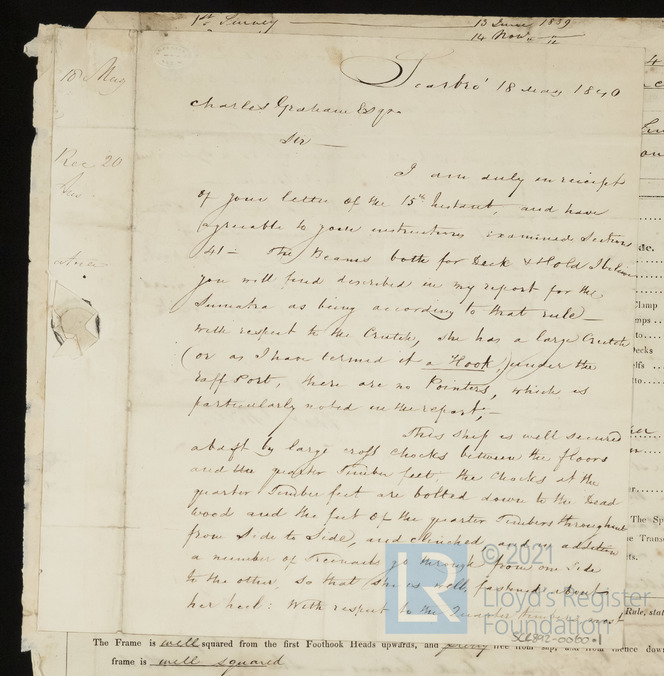 1st Survey 13 June 1839
14 Nov. "
Scarbro' 18 May 1840
Charles Graham Esqre
Sir —
I am duly in receipt
of your letter of the 15th Instant, and have
agreeable to your instructions examined Section
41 — The Beams both for Deck & Hold I believe
you will find described in my report for the
Sumatra as being according to that rule —
with respect to the Crutch, she has a large Crutch
(or as I have termed it a Hook,) under the
Taff Port, there are no Pointers, which is
particularly noted in the report, —
This Ship is well secured
abaft by large croſs chocks between the floors
and the quarter Timber feet, the Chocks at the
quarter Timber feet are bolted down to the Dead
wood and the feet of the quarter Timbers throughout
from Side to Side, and clinched, and in addition
a number of Treenails go through from one Side
to the other, so that she is well fastened about
her heel: With respect to the Quarter Timbers most
18 May
Rec 20
© 2021
LR
Lloyd's Register
Foundation
Rule, stat
The Frame is well squared from the first Foothook Heads upwards, and free from sap, and from thence dow
frame is well squared